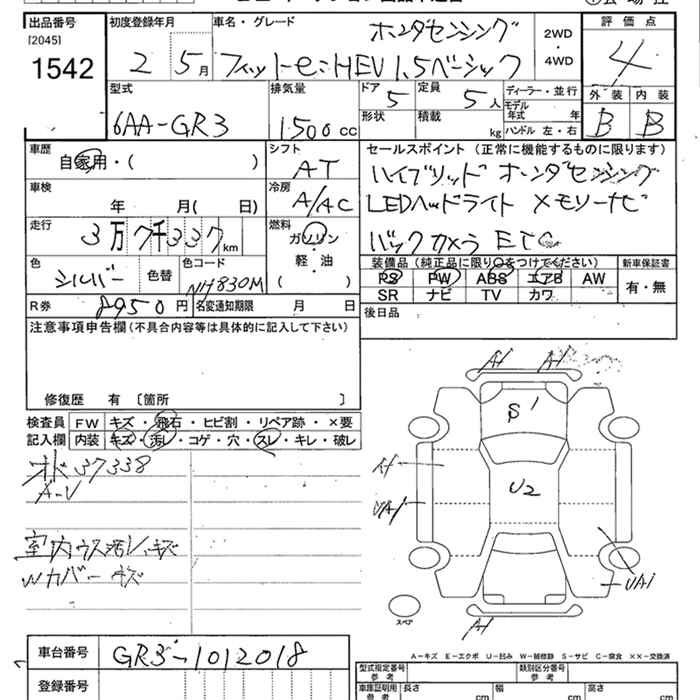 出品番号 初度登録年月 車名・グレード ホンダセンシング 2WD・4WD 評価点
[2045]
1542 2 5月 フィットe:HEV 1.5ベーシック 4
型式 排気量 ドア 5 定員 5人 ディーラー・並行 外装 内装
6AA-GR3 1500cc 形状 積載 kg モデル年式 年 B B
ハンドル 左・右
車歴 シフト セールスポイント (正常に機能するものに限ります)
自家用・( ) AT ハイブリッド ホンダセンシング
車検 冷房 LEDヘッドライト メモリーナビ
年 月( 日) A/AC バックカメラ ETC
走行 燃料
3万7千337km ガソリン
軽・油
( )
装備品 (純正品に限り○をつけてください) 新車保証書
色 色替 色コード PS PW ABS エアB AW 有・無
シルバー NH830M SR ナビ TV カワ
R券 8950円 名変通知期限 月 日 後日品
注意事項申告欄(不具合内容等は具体的に記入して下さい)
修復歴 有 〔箇所 〕
検査員 FW キズ・飛石・ヒビ割・リペア跡・×要
記入欄 内装 キズ・汚レ・コゲ・穴・スレ・キレ・破レ
オド37338
A-V
室内ウス汚レ、キズ
Wカバーキズ
A1 A1
S1
U2
A1
UA1
UA1
A1
スペア
A-キズ E-エクボ U-凹み W-補修跡 S-サビ C-腐食 ××-交換済
車台番号 GR3-1012018 型式指定番号 参考 類別区分番号 参考
登録番号 車庫証明用 参考 長さ cm 幅 cm 高さ cm